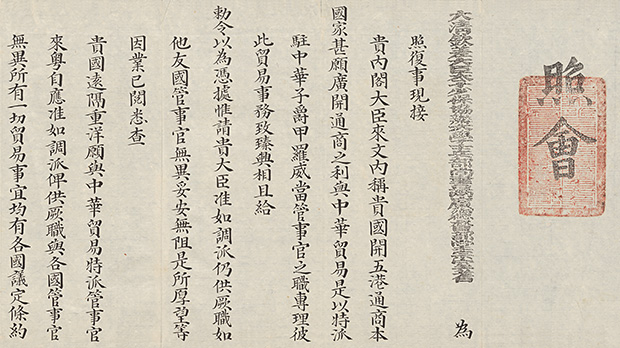 照會
大清欽差大臣太子少保協辦大學士兩廣總督部堂宗室耆 為
照復事現接
貴內閣大臣來文內稱貴國開五港通商本
國家甚願廣開通商之利與中華貿易是以特派
駐中華子爵甲羅威當管事官之職專理彼
此貿易事務致臻興相且給
勅令以為憑據惟請貴大臣准如調派仍供厥職如
他友國管事官無異妥安無阻是所厚望等
因業已閱悉查
貴國遠隔重洋願與中華貿易特派管事官
來粵自應准如調派俾供厥職與各國管事官
無異所有一切貿易事宜均有各國議定條約